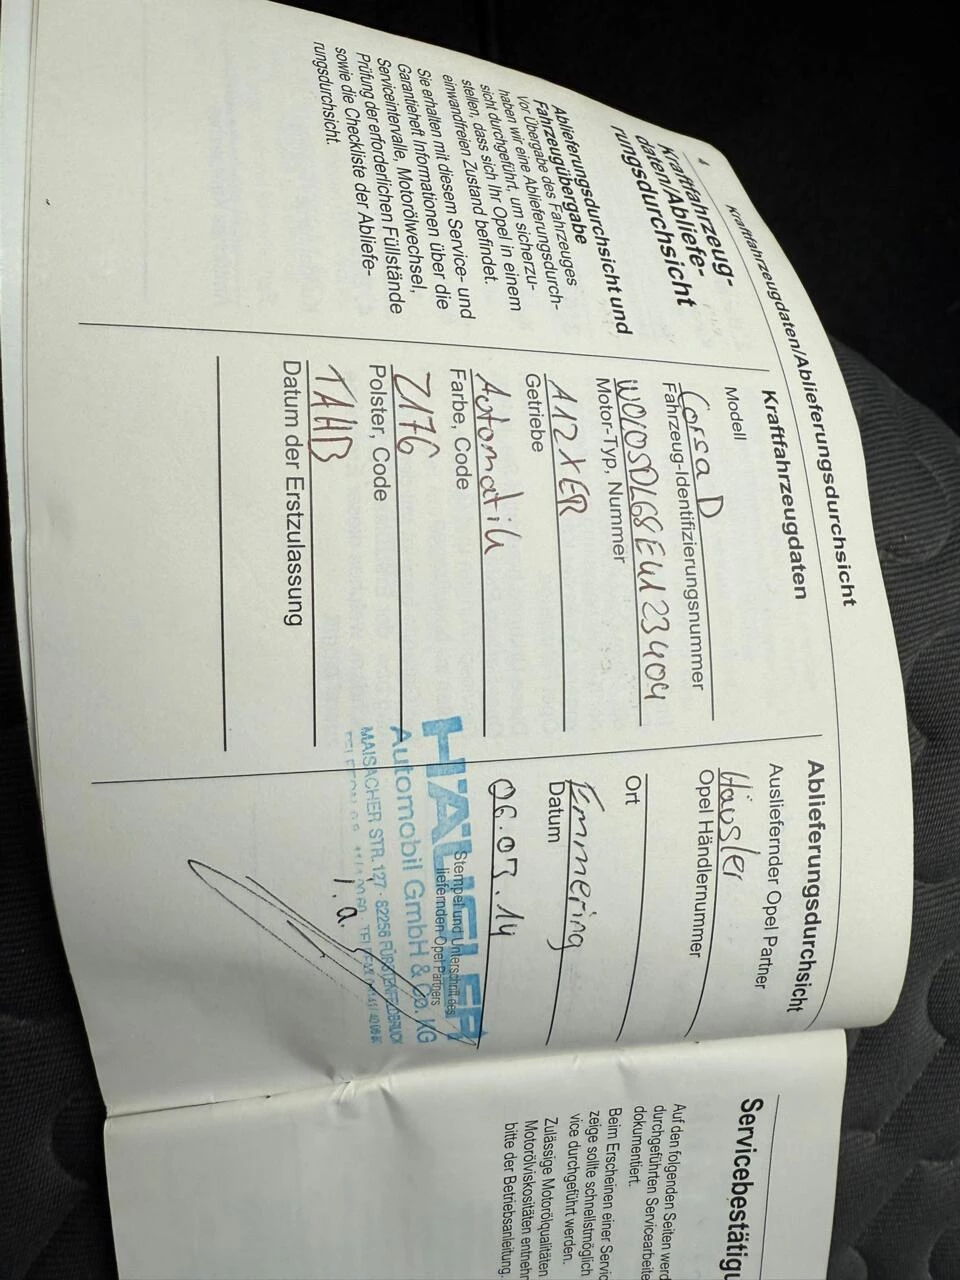 Kraftfahrzeugdaten/Ablieferungsdurchsicht
4
Kraftfahrzeug-
daten/Abliefe-
rungsdurchsicht
Ablieferungsdurchsicht und
Fahrzeugübergabe
Vor Übergabe des Fahrzeuges
haben wir eine Ablieferungsdurch-
sicht durchgeführt, um sicherzu-
stellen, dass sich Ihr Opel in einem
einwandfreien Zustand befindet.
Sie erhalten mit diesem Service- und
Garantieheft Informationen über die
Serviceintervalle, Motorölwechsel,
Prüfung der erforderlichen Füllstände
sowie die Checkliste der Abliefe-
rungsdurchsicht.
Kraftfahrzeugdaten
Modell
Corsa D
Fahrzeug-Identifizierungsnummer
W0L0SDL68E4123404
Motor-Typ, Nummer
A12XER
Getriebe
Automatik
Farbe, Code
Z176
Polster, Code
TAHB
Datum der Erstzulassung
Ablieferungsdurchsicht
Ausliefernder Opel Partner
Häusler
Opel Händlernummer
Ort
Emmering
Datum
06.03.14
Stempel und Unterschrift des
liefernden Opel Partners
HÄUSLER
Automobil GmbH & Co. KG
MAISACHER STR. 127 · 82256 FÜRSTENFELDBRUCK
i.a.
Servicebestätigu
Auf den folgenden Seiten werd
durchgeführten Servicearbeite
dokumentiert.
Beim Erscheinen einer Servic
zeige sollte schnellstmöglich
vice durchgeführt werden.
Zulässige Motorölqualitäten
Motorölviskositäten entnehm
bitte der Betriebsanleitung.